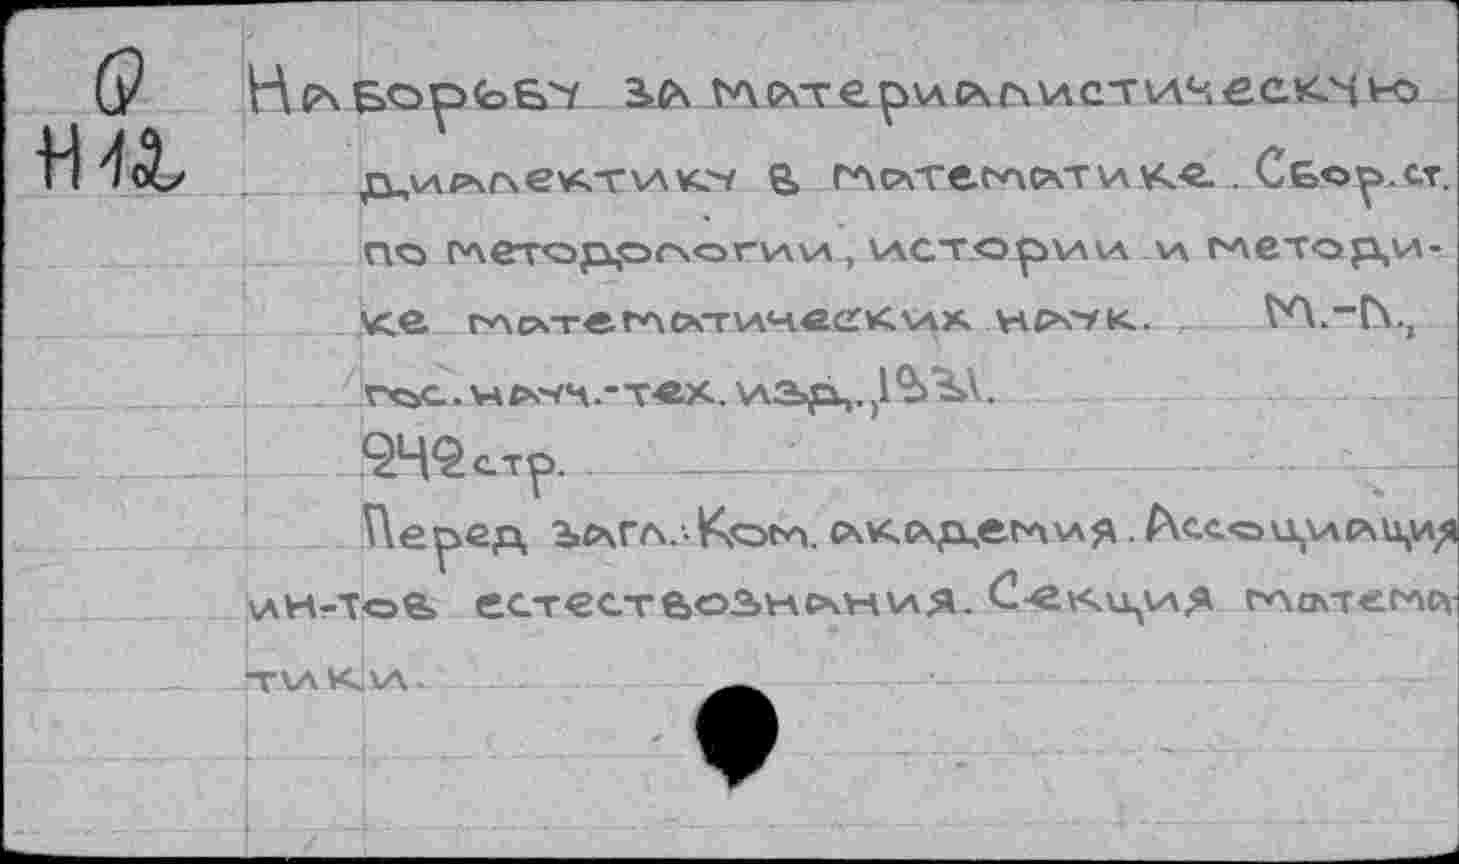 На борьбу за материалистическую
диалектику в математике. Сбор.ст.
по методологии, истории и методи-
ке математических наук. М.-Л.,
гос.науч.-тех.изд.,1931.
342 стр.
Перед загл.:Ком.академия.Ассоциация
ин-тов естествознания. Секция матема-
тики.